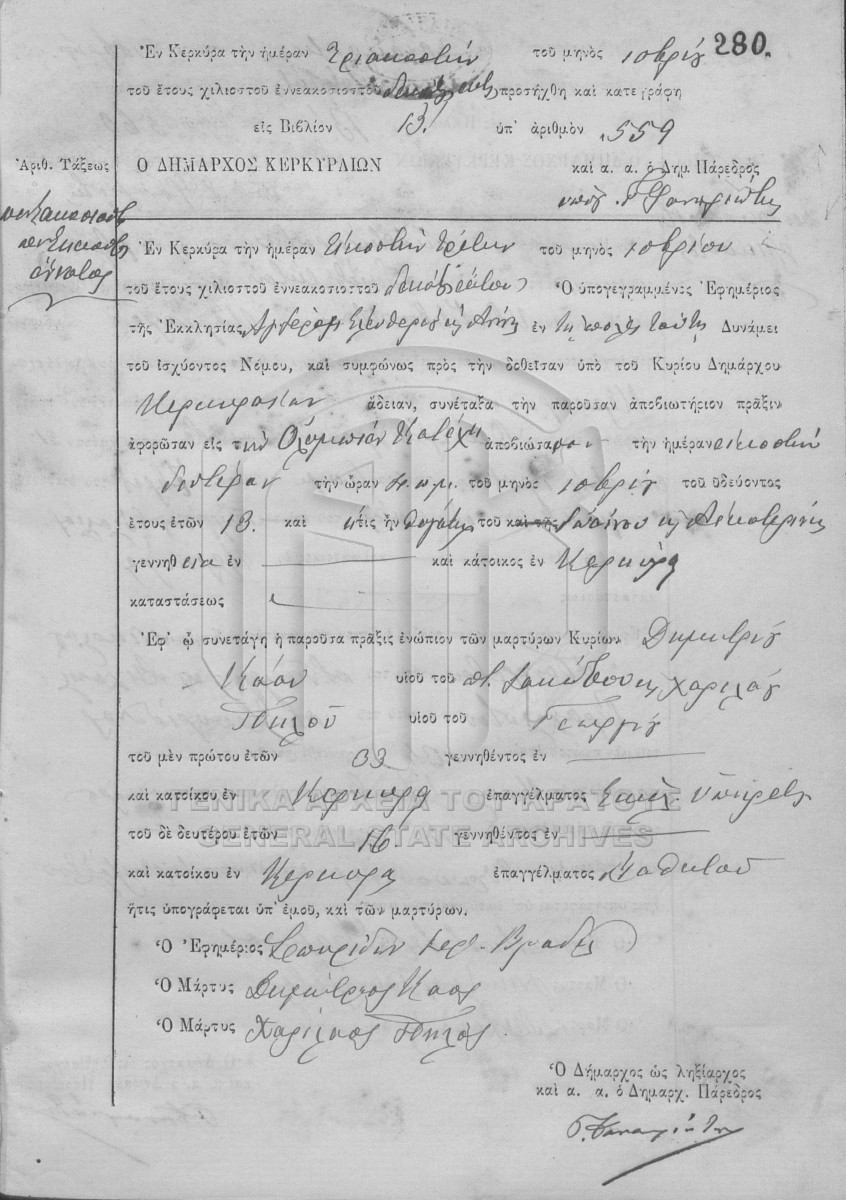 280.
Ἐν Κερκύρα τὴν ἡμέραν Τριακοστὴν τοῦ μηνὸς
τοῦ ἔτους χιλιοστοῦ ἐννεακοσιοστοῦ προσήχθη καὶ κατεγράφη
εἰς Βιβλίον 13. ὑπ' ἀριθμὸν 559
Ἀριθ. Τάξεως Ο ΔΗΜΑΡΧΟΣ ΚΕΡΚΥΡΑΙΩΝ καὶ α. α. ὁ Δημ. Πάρεδρος
πεντακοσιοστὸς
πεντηκοστὸς
ἔννατος
Ἐν Κερκύρα τὴν ἡμέραν Εἰκοστὴν τρίτην τοῦ μηνὸς
τοῦ ἔτους χιλιοστοῦ ἐννεακοσιοστοῦ Ὁ ὑπογεγραμμένος Ἐφημέριος
τῆς Ἐκκλησίας Ἐλευθερίου κ Ἄννης ἐν τῇ πόλει ταύτῃ Δυνάμει
τοῦ ἰσχύοντος Νόμου, καὶ συμφώνως πρὸς τὴν δοθεῖσαν ὑπὸ τοῦ Κυρίου Δημάρχου
Κερκυραίων ἄδειαν, συνέταξα τὴν παροῦσαν ἀποβιωτήριον πρᾶξιν
ἀφορῶσαν εἰς τὴν Ὀλυμπίαν ἀποβιώσασαν τὴν ἡμέραν εἰκοστὴν
δευτέραν τὴν ὥραν π.μ. τοῦ μηνὸς τοῦ ὁδεύοντος
ἔτους ἐτῶν 13. καὶ ἥτις ἦν θυγάτηρ τοῦ καὶ τῆς κ Αἰκατερίνης
γεννηθεῖσα ἐν καὶ κάτοικος ἐν Κερκύρᾳ
καταστάσεως
Ἐφ' ᾧ συνετάγη ἡ παροῦσα πρᾶξις ἐνώπιον τῶν μαρτύρων Κυρίων Δημητρίου
Κάον υἱοῦ τοῦ κ Χαριλάου
Πηλοῦ υἱοῦ τοῦ Γεωργίου
τοῦ μὲν πρώτου ἐτῶν 33 γεννηθέντος ἐν
καὶ κατοίκου ἐν Κερκύρᾳ ἐπαγγέλματος Ἐκκλ. Ὑπηρέτης
τοῦ δὲ δευτέρου ἐτῶν 16 γεννηθέντος ἐν
καὶ κατοίκου ἐν Κερκύρᾳ ἐπαγγέλματος Μαθητοῦ
ἥτις ὑπογράφεται ὑπ' ἐμοῦ, καὶ τῶν μαρτύρων.
Ὁ Ἐφημέριος Σπυρίδων Ἱερ.
Ὁ Μάρτυς Δημήτριος Κάος
Ὁ Μάρτυς Χαρίλαος Πηλός.
Ὁ Δήμαρχος ὡς ληξίαρχος
καὶ α. α. ὁ Δημαρχ. Πάρεδρος
ΓΕΝΙΚΑ ΑΡΧΕΙΑ ΤΟΥ ΚΡΑΤΟΥΣ
GENERAL STATE ARCHIVES